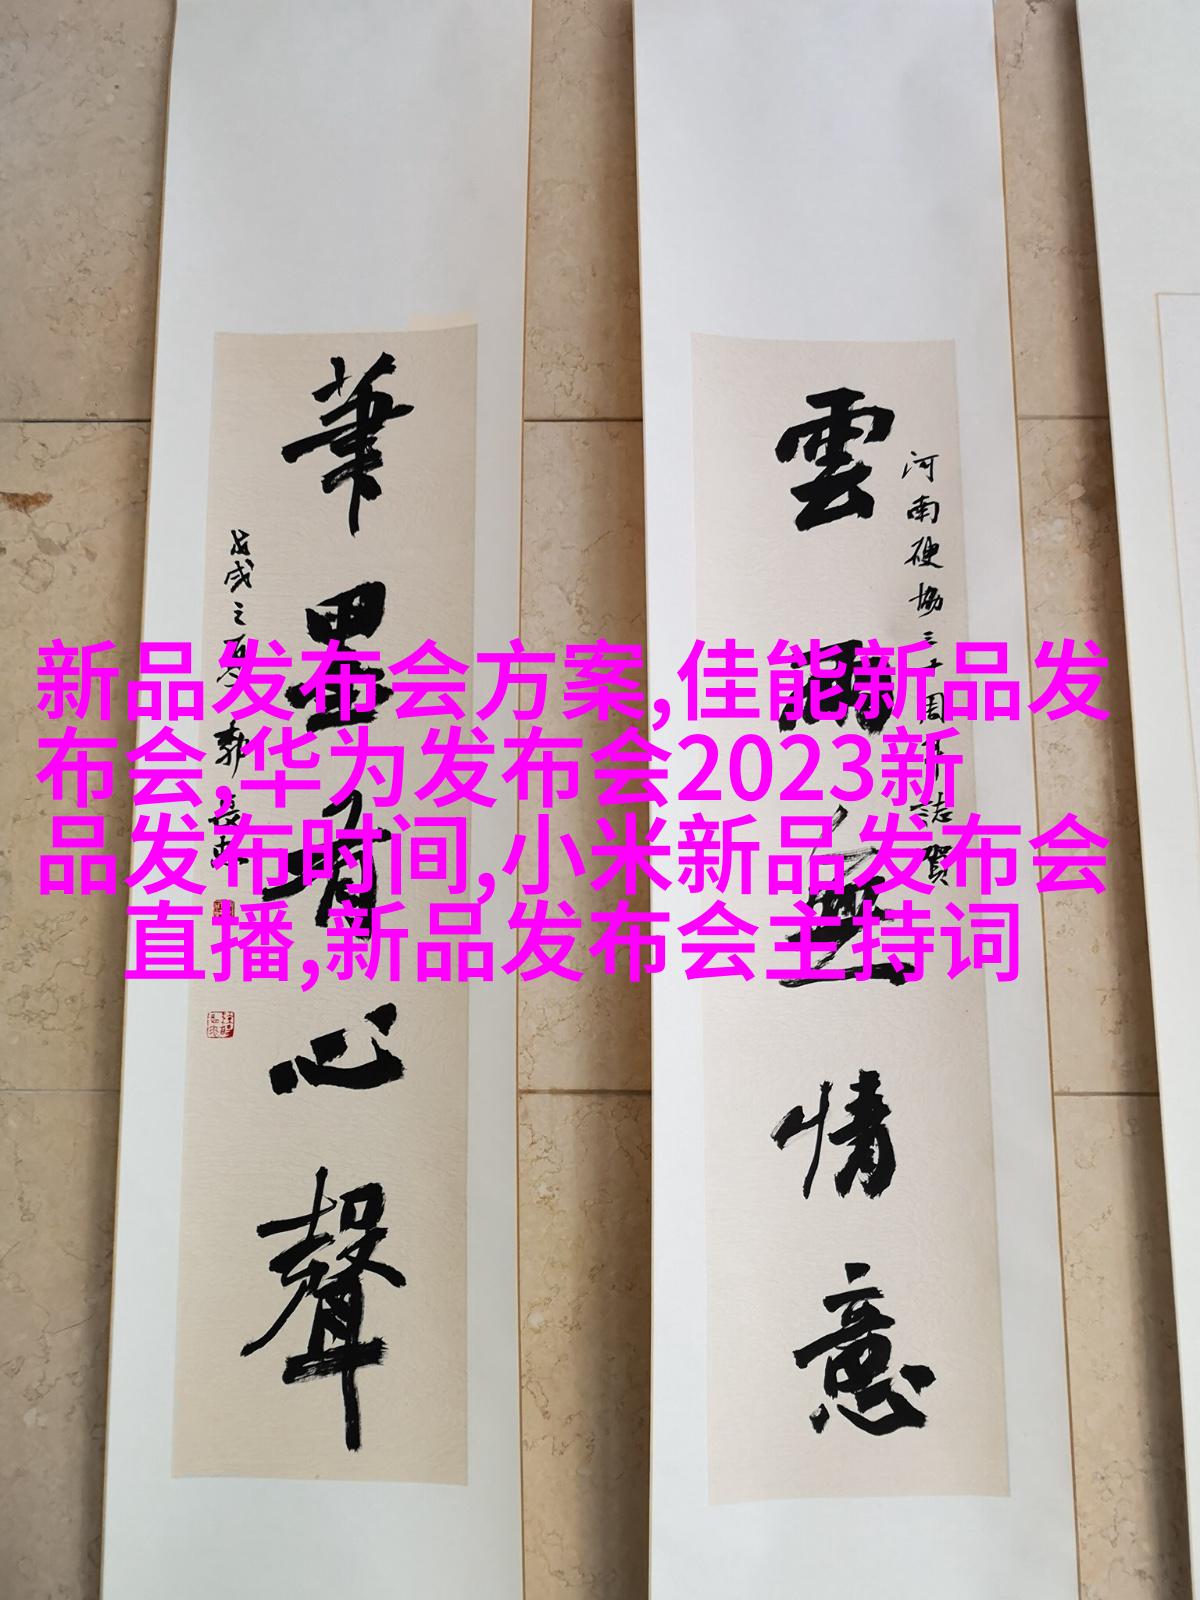 新品发布会方案,佳能新品发
布会,华为发布会2023新
品发布时间,小米新品发布会
直播,新品发布会主持词
河南硬協三十周年誌賀
雲雨無情意
筆墨有心聲
戊戌之夏